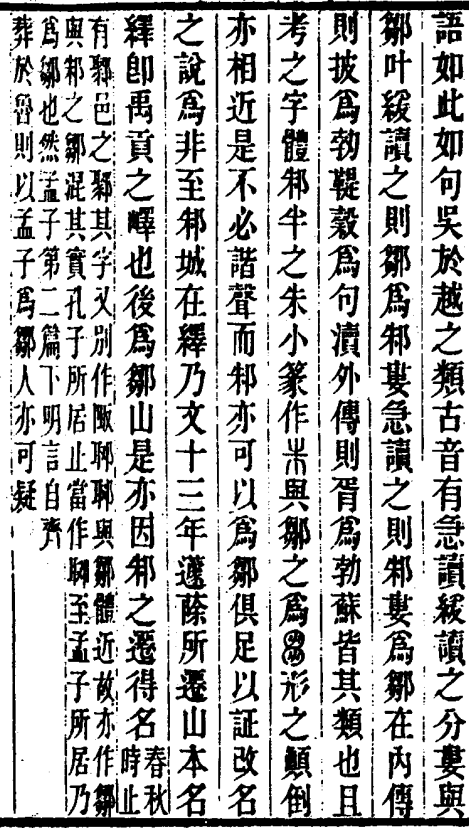 語如此如句吳於越之類古音有急讀緩讀之分婁與
鄒叶緩讀之則鄒爲邾婁急讀之則邾婁爲鄒在內傳
則披爲勃鞮榖爲句瀆外傳則胥爲勃蘇皆其類也且
考之字體邾半之朱小篆作與鄒之爲形之顚倒
亦相近是不必諧聲而邾亦可以爲鄒俱足以証改名
之說爲非至邾城在繹乃文十三年蘧蒢所遷山本名
繹卽禹貢之嶧也後爲鄒山是亦因邾之遷得名
春秋
時止
有鄹邑之鄹其字又別作陬郰郰與鄒體近故亦作鄒
與邾之鄒混其實孔子所居止當作郰至孟子所居乃
爲鄒也然孟子第二篇下明言自齊
葬於魯則以孟子爲鄒人亦可疑